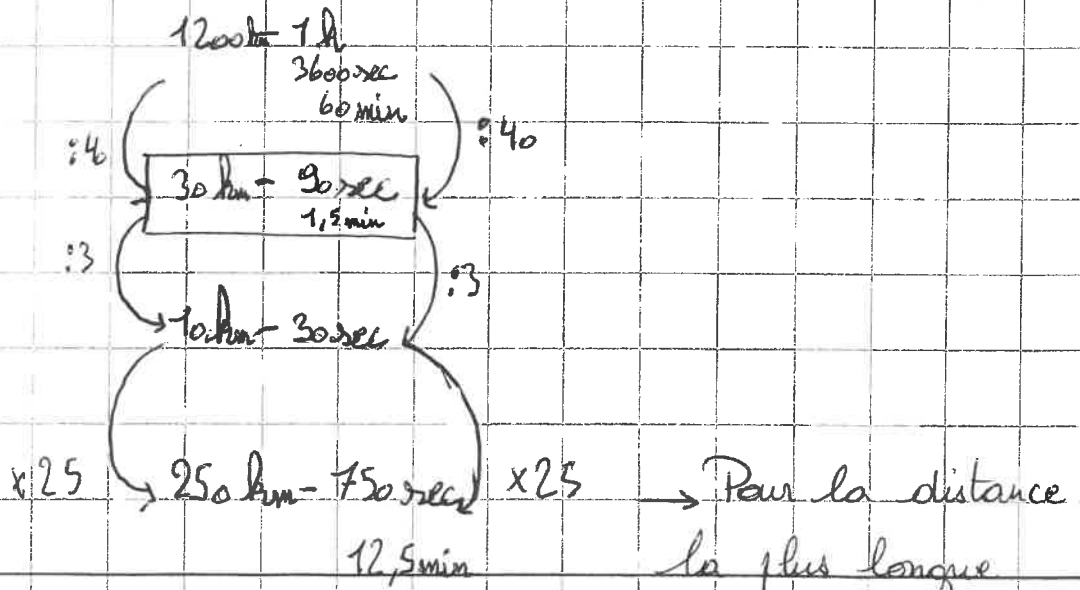 1200km - 1h
3600sec
60min
:40 :40
30 km - 90 sec
1,5min
:3 :3
10 km - 30 sec
x25 250 km - 750 sec x25 → Pour la distance
12,5min la plus longue